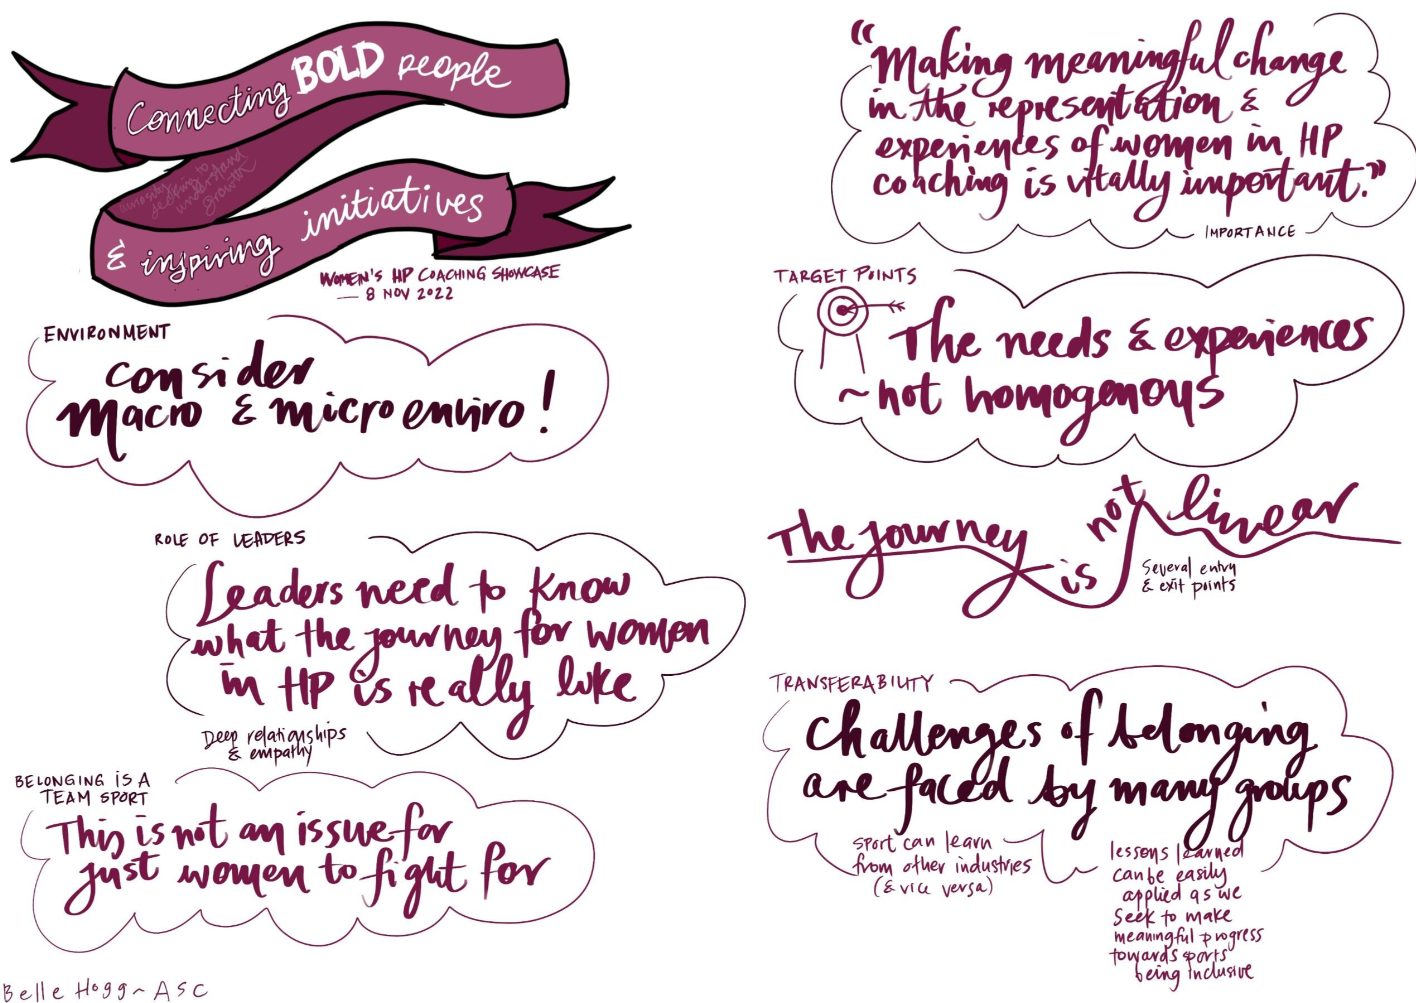 Connecting BOLD people
curiosity
seeking to
understand
growth
& inspiring initiatives
WOMEN'S HP COACHING SHOWCASE
— 8 NOV 2022
ENVIRONMENT
consider
macro & micro enviro!
ROLE OF LEADERS
Leaders need to know
what the journey for women
in HP is really like
Deep relationships
& empathy
BELONGING IS A
TEAM SPORT
This is not an issue for
just women to fight for
Belle Hogg ~ ASC
“Making meaningful change
in the representation &
experiences of women in HP
coaching is vitally important.”
IMPORTANCE
TARGET POINTS
The needs & experiences
~ not homogenous
The journey is not linear
Several entry
& exit points
TRANSFERABILITY
Challenges of belonging
are faced by many groups
sport can learn
from other industries
(& vice versa)
lessons learned
can be easily
applied as we
seek to make
meaningful progress
towards sports
being inclusive